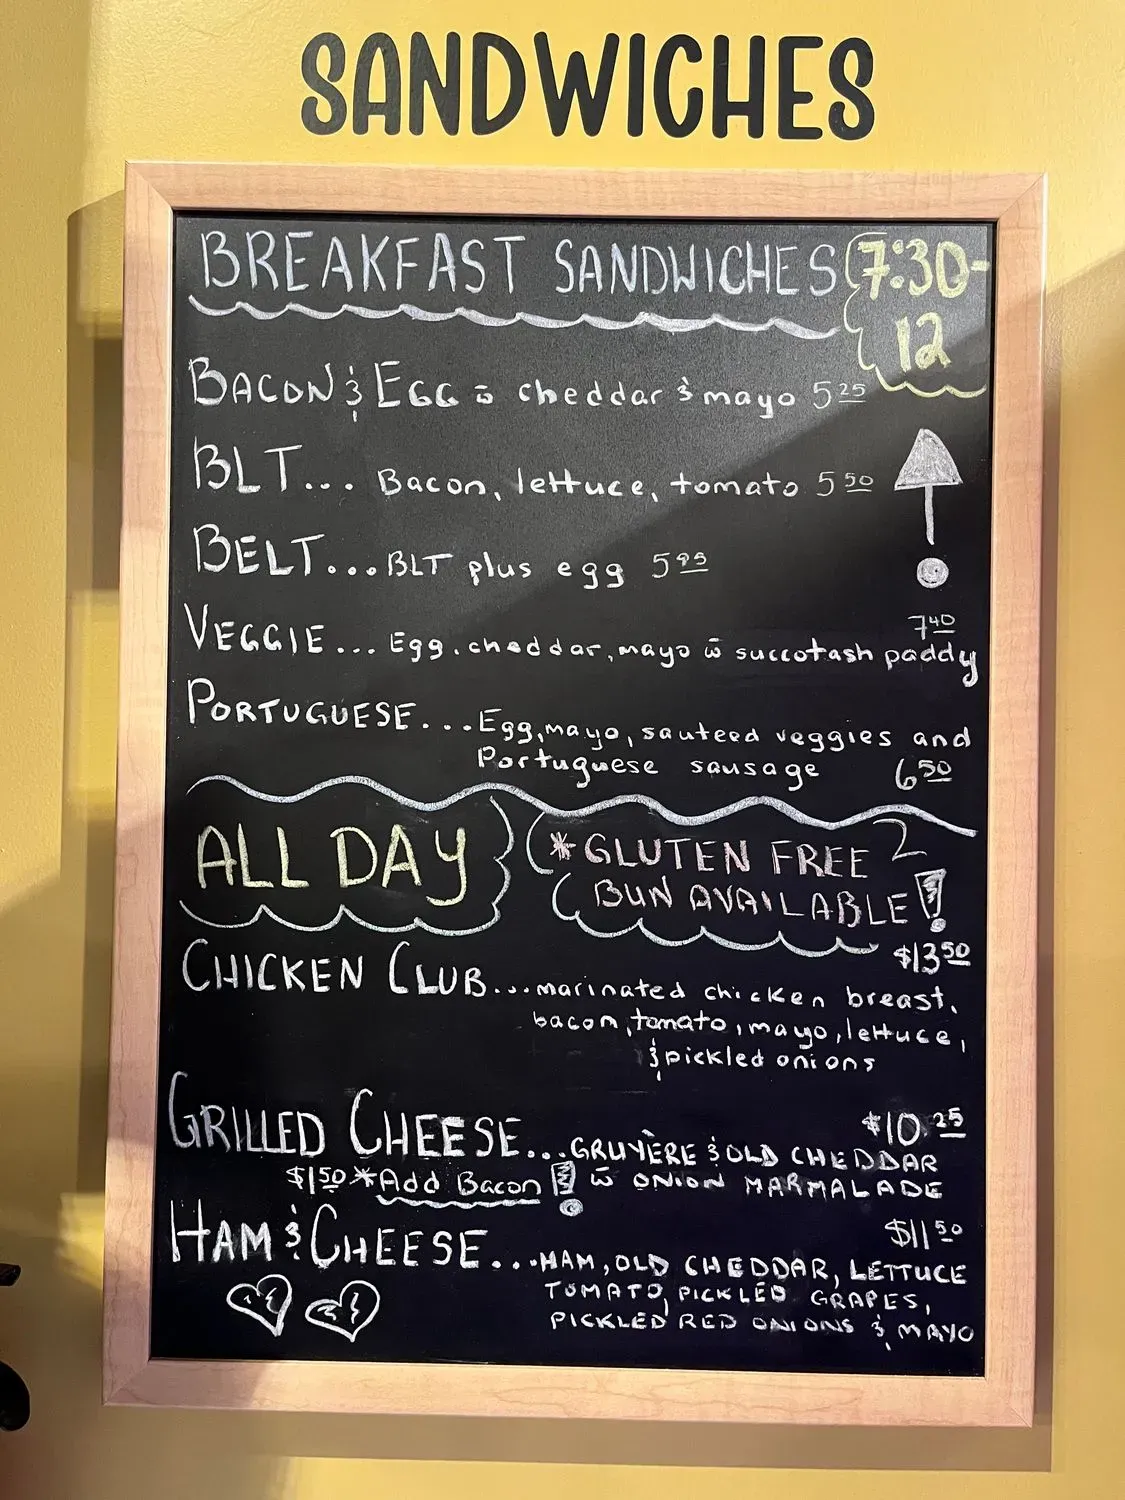 SANDWICHES
BREAKFAST SANDWICHES 7:30-
12
BACON & EGG w̄ cheddar & mayo 5 25
BLT... Bacon, lettuce, tomato 5 50
BELT... BLT plus egg 5 95
7 40
VEGGIE... Egg, cheddar, mayo w̄ succotash paddy
PORTUGUESE... Egg, mayo, sauteed veggies and
Portuguese sausage 6 50
ALL DAY
*GLUTEN FREE 2
BUN AVAILABLE!
$13 50
CHICKEN CLUB... marinated chicken breast,
bacon, tomato, mayo, lettuce,
& pickled onions
$10.25
GRILLED CHEESE... GRUYÈRE & OLD CHEDDAR
$1 50 *Add Bacon! w̄ ONION MARMALADE
$11 50
HAM & CHEESE... HAM, OLD CHEDDAR, LETTUCE
TOMATO, PICKLED GRAPES,
PICKLED RED ONIONS & MAYO